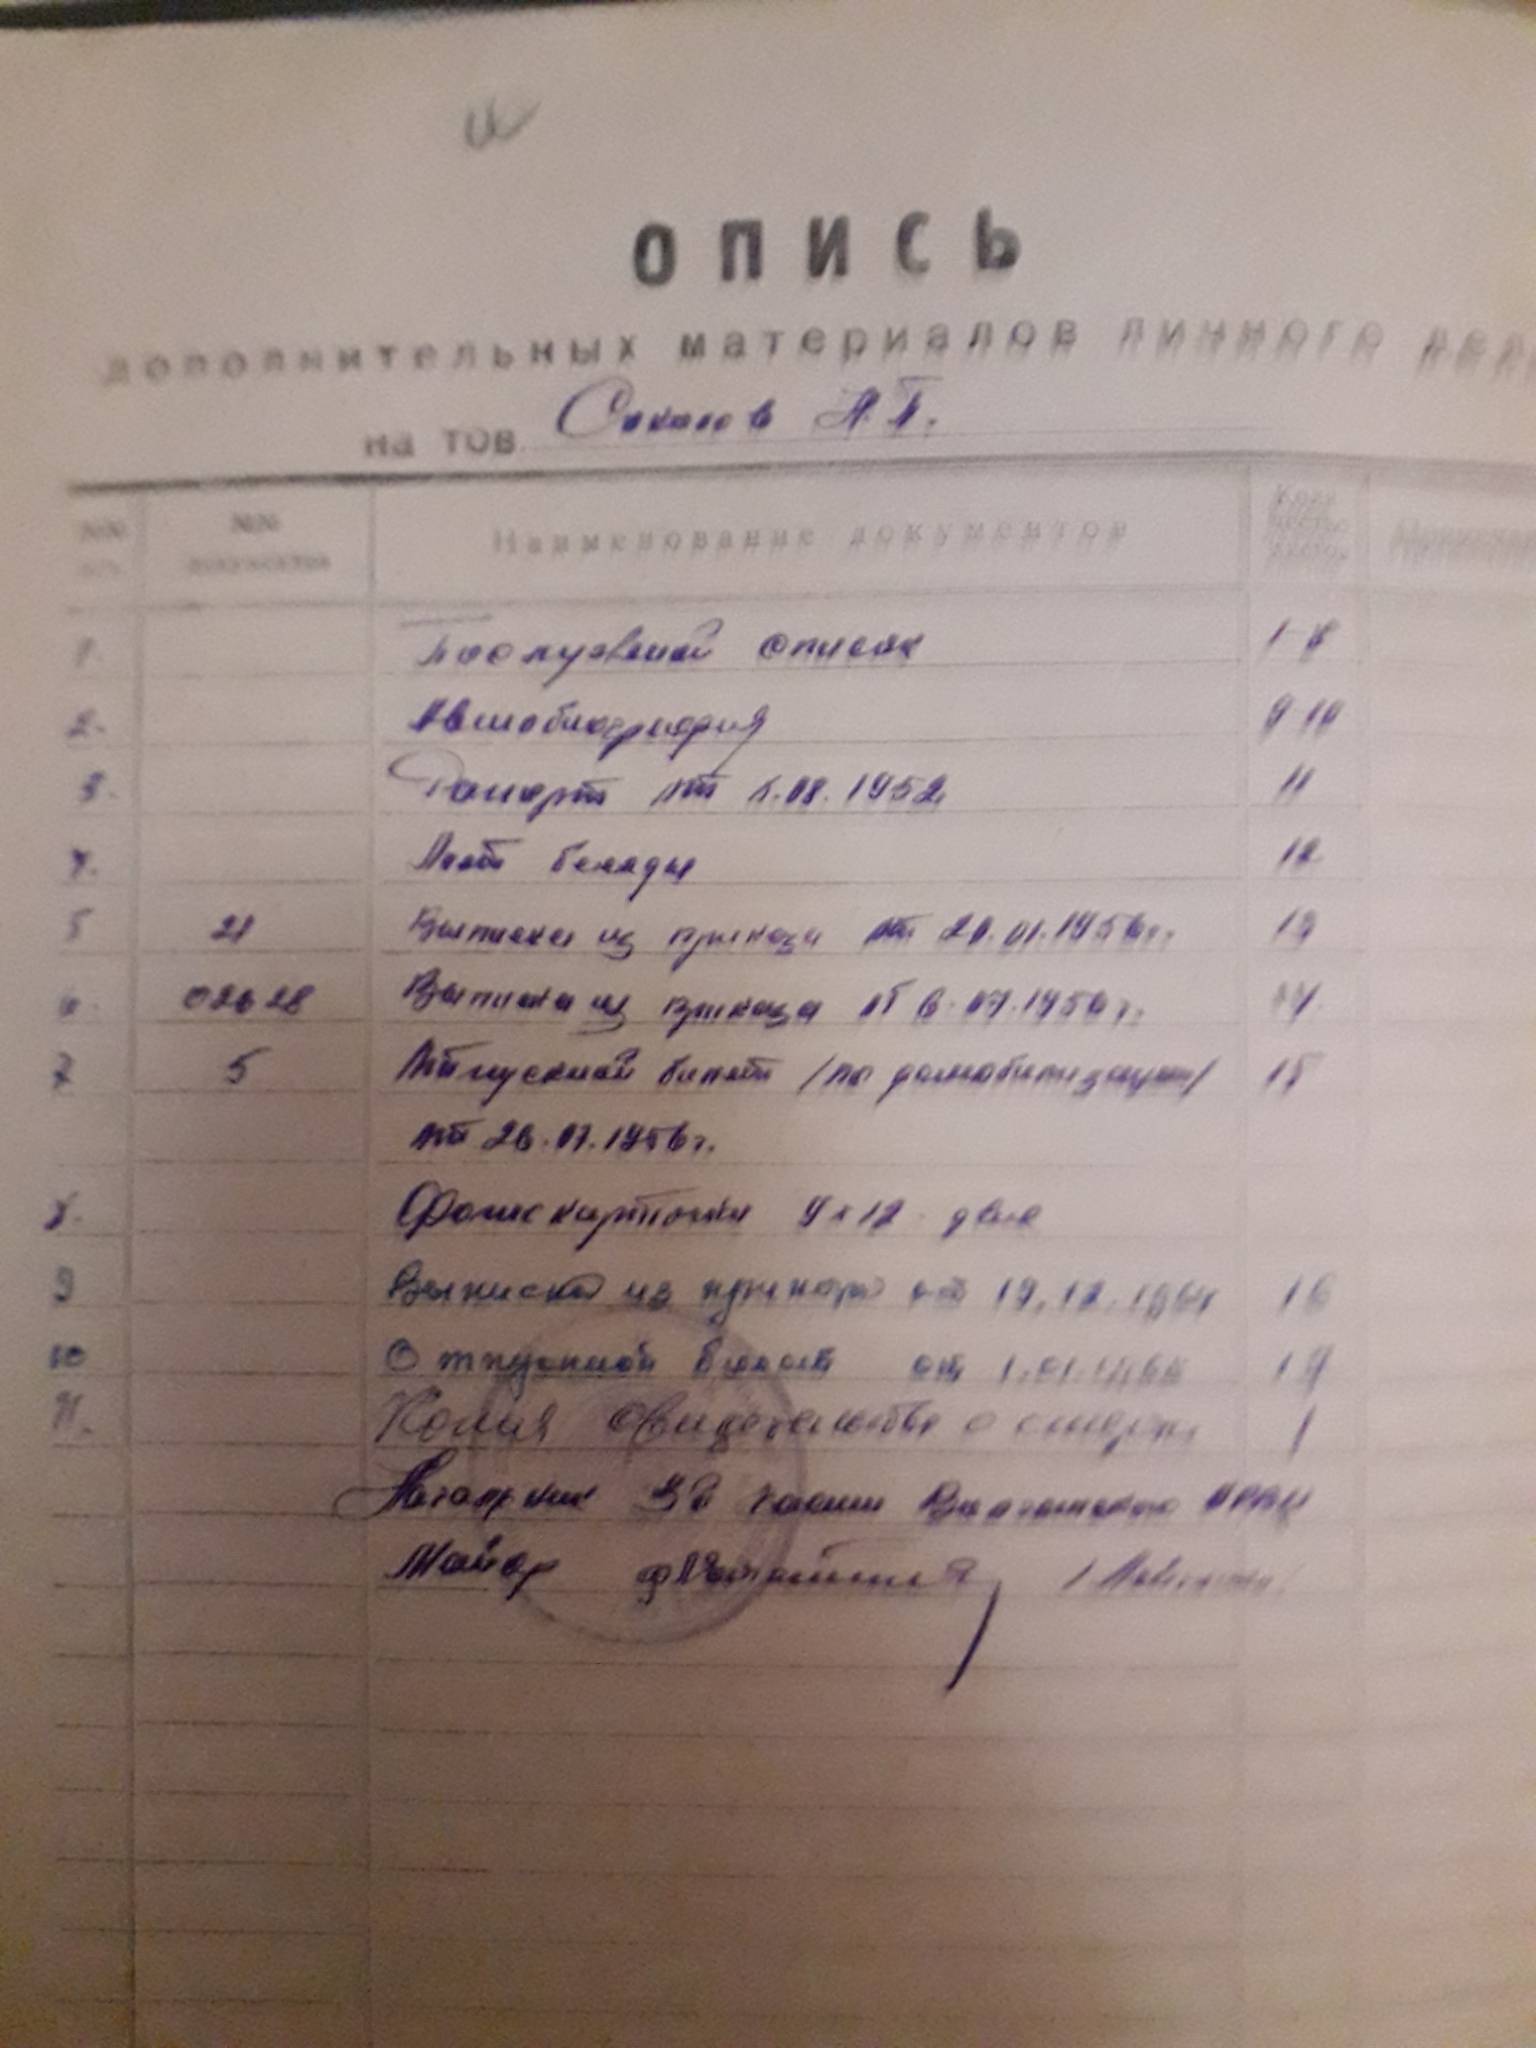 ОПИСЬ
дополнительных материалов личного
на тов. Соколов А.П.
№№ №№ Наименование документов Коли чество листов
1. Послужной список 1-8
2. Автобиография 9-10
3. Рапорт от 1952 11
4. Лист беседы 12
5 21 Выписка из приказа от 21.01.1956г. 13
6. 02628 Выписка из приказа 6.07.1956г. 14
7 5 Отпускной билет /по демобилизации/ 15
от 26.07.1956г.
8. Фотокарточки 9х12 две
9 Выписка из приказа от 16
10 Отпускной билет от 1.01. 17
11. Копия свидетельства о смерти 1
Начальник 3й части
Майор